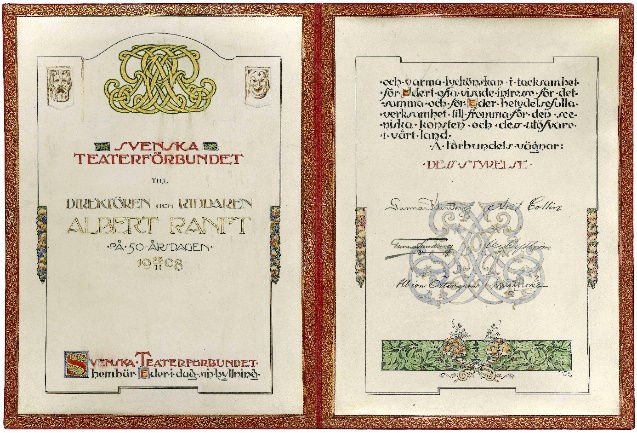 SVENSKA
TEATERFÖRBUNDET
TILL
DIREKTÖREN OCH RIDDAREN
ALBERT RANFT
·PÅ·50·ÅRSDAGEN·
19 23/11 08
SVENSKA·TEATERFÖRBUNDET·
hembär·Eder·i·dag·sin·hyllning·
·och·varma·lyckönskan·i·tacksamhet·
för·Edert·visade·intresse·för·det·
samma·och·för·Eder·betydelsefulla·
verksamhet·till·fromma·för·den·sce-
niska·konsten·och·dess·utöfvare·
i·vårt·land.
·Å·förbundets·vägnar:
·DESS·STYRELSE·